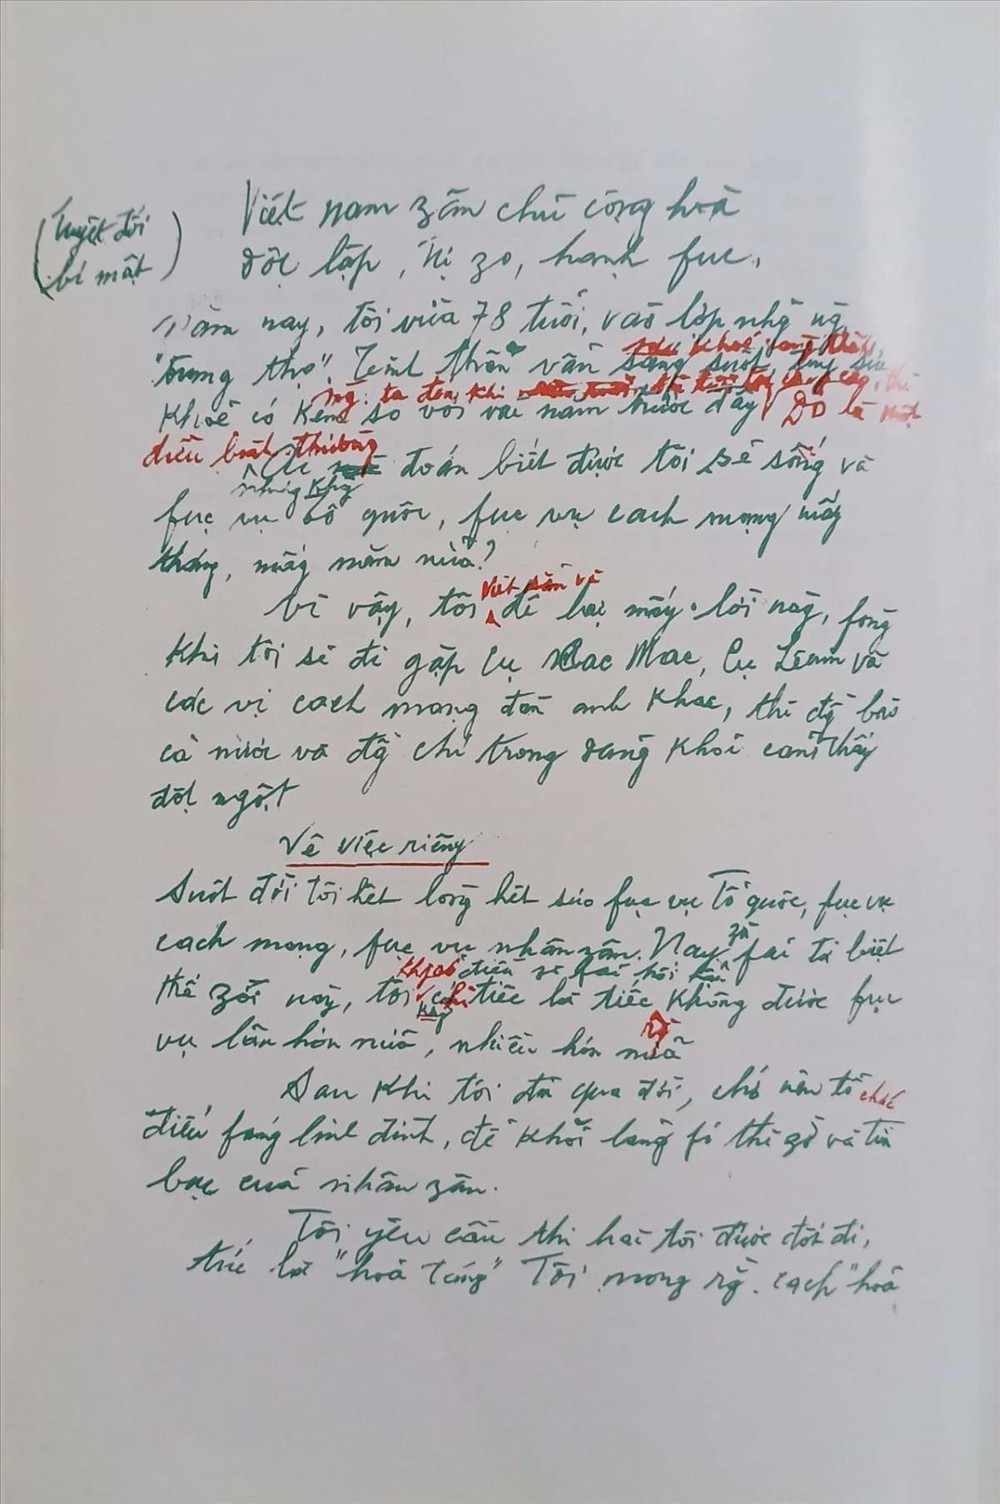 (Tuyệt đối
bí mật)
Việt nam zân chủ cộng hoà
độc lập, tự zo, hạnh fúc.
Năm nay, tôi vừa 78 tuổi, vào lớp nhữ ng.
"trung thọ". Tinh thần vẫn sáng suốt, tuy sức
khoẻ có kém so với vài năm trước đây. Đó là một
ng. ta đến khi
điều bình thường
Ai mà đoán biết được tôi sẽ sống và
fục vụ tổ quốc, fục vụ cách mạng mấy
tháng, mấy năm nữa?
Vì vậy, tôi viết sẵn và để lại mấy lời này, fòng
khi tôi sẽ đi gặp cụ Các Mác, cụ Lênin và
các vị cách mạng đàn anh khác, thì đg bào
cả nước và đg chí trong đảng khỏi cảm thấy
đột ngột.
Về việc riêng
Suốt đời tôi hết lòng hết sức fục vụ Tổ quốc, fục vụ
cách mạng, fục vụ nhân zân. Nay zù fải từ biệt
thế zới này, tôi không có điều zì fải hối hận
chỉ tiếc là tiếc không được fục
vụ lâu hơn nữa, nhiều hơn nữa
Sau khi tôi đã qua đời, chớ nên tổ chức
điếu fúng linh đình, để khỏi lãng fí thì zờ và tiền
bạc của nhân zân.
Tôi yêu cầu thi hài tôi được đốt đi,
tức là "hoả táng" Tôi mong rg. cách "hoả